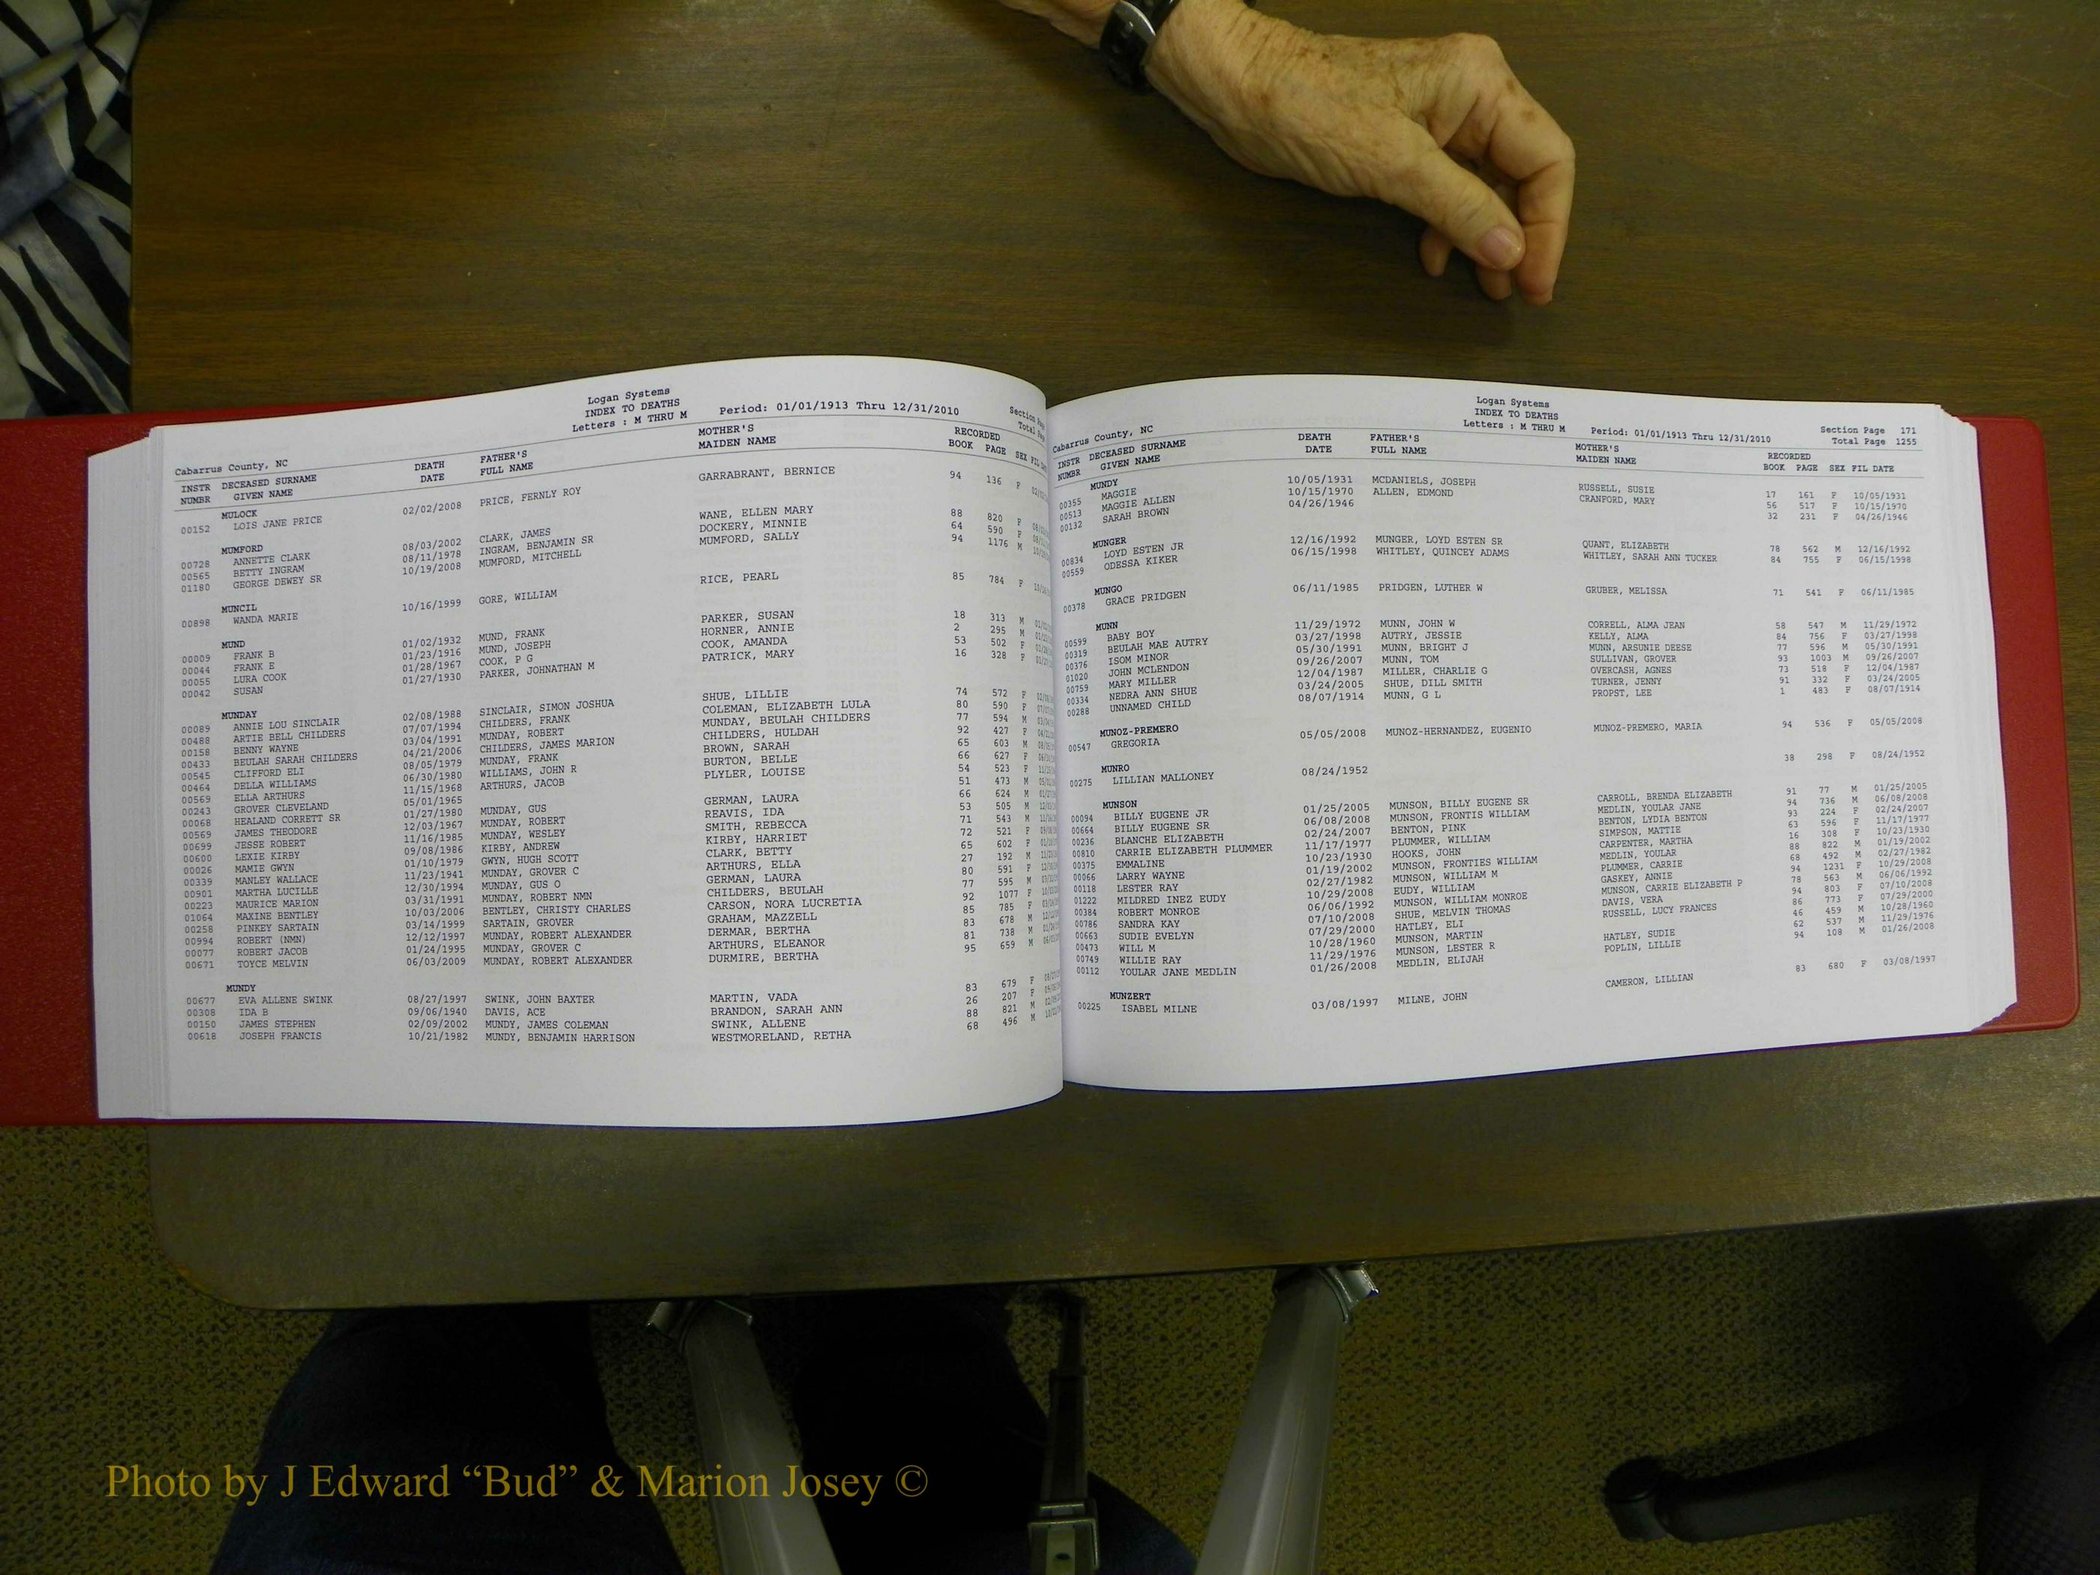 Logan Systems
INDEX TO DEATHS
Letters : M THRU M Period: 01/01/1913 Thru 12/31/2010
Section
Total
Cabarrus County, NC
INSTR DECEASED SURNAME DEATH FATHER'S MOTHER'S RECORDED
NUMBR GIVEN NAME DATE FULL NAME MAIDEN NAME BOOK PAGE SEX FIL
MULOCK
00152 LOIS JANE PRICE 02/02/2008 PRICE, FERNLY ROY GARRABRANT, BERNICE 94 136 F
MUMFORD
00728 ANNETTE CLARK 08/03/2002 CLARK, JAMES WANE, ELLEN MARY 88 820 F
00565 BETTY INGRAM 08/11/1978 INGRAM, BENJAMIN SR DOCKERY, MINNIE 64 590 F
01180 GEORGE DEWEY SR 10/19/2008 MUMFORD, MITCHELL MUMFORD, SALLY 94 1176 M
MUNCIL
00898 WANDA MARIE 10/16/1999 GORE, WILLIAM RICE, PEARL 85 784 F
MUND
00009 FRANK B 01/02/1932 MUND, FRANK PARKER, SUSAN 18 313 M
00044 FRANK E 01/23/1916 MUND, JOSEPH HORNER, ANNIE 2 295 M
00055 LURA COOK 01/28/1967 COOK, P G COOK, AMANDA 53 502 F
00042 SUSAN 01/27/1930 PARKER, JOHNATHAN M PATRICK, MARY 16 328 F
MUNDAY
00089 ANNIE LOU SINCLAIR 02/08/1988 SINCLAIR, SIMON JOSHUA SHUE, LILLIE 74 572 F
00488 ARTIE BELL CHILDERS 07/07/1994 CHILDERS, FRANK COLEMAN, ELIZABETH LULA 80 590 F
00158 BENNY WAYNE 03/04/1991 MUNDAY, ROBERT MUNDAY, BEULAH CHILDERS 77 594 M
00433 BEULAH SARAH CHILDERS 04/21/2006 CHILDERS, JAMES MARION CHILDERS, HULDAH 92 427 F
00545 CLIFFORD ELI 08/05/1979 MUNDAY, FRANK BROWN, SARAH 65 603 M
00464 DELLA WILLIAMS 06/30/1980 WILLIAMS, JOHN R BURTON, BELLE 66 627 F
00569 ELLA ARTHURS 11/15/1968 ARTHURS, JACOB PLYLER, LOUISE 54 523 F
00243 GROVER CLEVELAND 05/01/1965 51 473 M
00068 HEALAND CORRETT SR 01/27/1980 MUNDAY, GUS GERMAN, LAURA 66 624 M
00569 JAMES THEODORE 12/03/1967 MUNDAY, ROBERT REAVIS, IDA 53 505 M
00699 JESSE ROBERT 11/16/1985 MUNDAY, WESLEY SMITH, REBECCA 71 543 M
00600 LEXIE KIRBY 09/08/1986 KIRBY, ANDREW KIRBY, HARRIET 72 521 F
00026 MAMIE GWYN 01/10/1979 GWYN, HUGH SCOTT CLARK, BETTY 65 602 F
00339 MANLEY WALLACE 11/23/1941 MUNDAY, GROVER C ARTHURS, ELLA 27 192 M
00901 MARTHA LUCILLE 12/30/1994 MUNDAY, GUS O GERMAN, LAURA 80 591 F
00223 MAURICE MARION 03/31/1991 MUNDAY, ROBERT NMN CHILDERS, BEULAH 77 595 M
01064 MAXINE BENTLEY 10/03/2006 BENTLEY, CHRISTY CHARLES CARSON, NORA LUCRETIA 92 1077 F
00258 PINKEY SARTAIN 03/14/1999 SARTAIN, GROVER GRAHAM, MAZZELL 85 785 F
00994 ROBERT (NMN) 12/12/1997 MUNDAY, ROBERT ALEXANDER DERMAR, BERTHA 83 678 M
00077 ROBERT JACOB 01/24/1995 MUNDAY, GROVER C ARTHURS, ELEANOR 81 738 M
00671 TOYCE MELVIN 06/03/2009 MUNDAY, ROBERT ALEXANDER DURMIRE, BERTHA 95 659 M
MUNDY
00677 EVA ALLENE SWINK 08/27/1997 SWINK, JOHN BAXTER MARTIN, VADA 83 679 F
00308 IDA B 09/06/1940 DAVIS, ACE BRANDON, SARAH ANN 26 207 F
00150 JAMES STEPHEN 02/09/2002 MUNDY, JAMES COLEMAN SWINK, ALLENE 88 821 M
00618 JOSEPH FRANCIS 10/21/1982 MUNDY, BENJAMIN HARRISON WESTMORELAND, RETHA 68 496 M
Logan Systems
INDEX TO DEATHS
Letters : M THRU M Period: 01/01/1913 Thru 12/31/2010
Section Page 171
Total Page 1255
Cabarrus County, NC
INSTR DECEASED SURNAME DEATH FATHER'S MOTHER'S RECORDED
NUMBR GIVEN NAME DATE FULL NAME MAIDEN NAME BOOK PAGE SEX FIL DATE
MUNDY
00355 MAGGIE 10/05/1931 MCDANIELS, JOSEPH RUSSELL, SUSIE 17 161 F 10/05/1931
00513 MAGGIE ALLEN 10/15/1970 ALLEN, EDMOND CRANFORD, MARY 56 517 F 10/15/1970
00132 SARAH BROWN 04/26/1946 32 231 F 04/26/1946
MUNGER
00834 LOYD ESTEN JR 12/16/1992 MUNGER, LOYD ESTEN SR QUANT, ELIZABETH 78 562 M 12/16/1992
00559 ODESSA KIKER 06/15/1998 WHITLEY, QUINCEY ADAMS WHITLEY, SARAH ANN TUCKER 84 755 F 06/15/1998
MUNGO
00378 GRACE PRIDGEN 06/11/1985 PRIDGEN, LUTHER W GRUBER, MELISSA 71 541 F 06/11/1985
MUNN
00599 BABY BOY 11/29/1972 MUNN, JOHN W CORRELL, ALMA JEAN 58 547 M 11/29/1972
00319 BEULAH MAE AUTRY 03/27/1998 AUTRY, JESSIE KELLY, ALMA 84 756 F 03/27/1998
00376 ISOM MINOR 05/30/1991 MUNN, BRIGHT J MUNN, ARSUNIE DEESE 77 596 M 05/30/1991
01020 JOHN MCLENDON 09/26/2007 MUNN, TOM SULLIVAN, GROVER 93 1003 M 09/26/2007
00759 MARY MILLER 12/04/1987 MILLER, CHARLIE G OVERCASH, AGNES 73 518 F 12/04/1987
00334 NEDRA ANN SHUE 03/24/2005 SHUE, DILL SMITH TURNER, JENNY 91 332 F 03/24/2005
00288 UNNAMED CHILD 08/07/1914 MUNN, G L PROPST, LEE 1 483 F 08/07/1914
MUNOZ-PREMERO
00547 GREGORIA 05/05/2008 MUNOZ-HERNANDEZ, EUGENIO MUNOZ-PREMERO, MARIA 94 536 F 05/05/2008
MUNRO
00275 LILLIAN MALLONEY 08/24/1952 38 298 F 08/24/1952
MUNSON
00094 BILLY EUGENE JR 01/25/2005 MUNSON, BILLY EUGENE SR CARROLL, BRENDA ELIZABETH 91 77 M 01/25/2005
00664 BILLY EUGENE SR 06/08/2008 MUNSON, FRONTIS WILLIAM MEDLIN, YOULAR JANE 94 736 M 06/08/2008
00236 BLANCHE ELIZABETH 02/24/2007 BENTON, PINK BENTON, LYDIA BENTON 93 224 F 02/24/2007
00810 CARRIE ELIZABETH PLUMMER 11/17/1977 PLUMMER, WILLIAM SIMPSON, MATTIE 63 596 F 11/17/1977
00375 EMMALINE 10/23/1930 HOOKS, JOHN CARPENTER, MARTHA 16 308 F 10/23/1930
00066 LARRY WAYNE 01/19/2002 MUNSON, FRONTIES WILLIAM MEDLIN, YOULAR 88 822 M 01/19/2002
00118 LESTER RAY 02/27/1982 MUNSON, WILLIAM M PLUMMER, CARRIE 68 492 M 02/27/1982
01222 MILDRED INEZ EUDY 10/29/2008 EUDY, WILLIAM GASKEY, ANNIE 94 1231 F 10/29/2008
00384 ROBERT MONROE 06/06/1992 MUNSON, WILLIAM MONROE MUNSON, CARRIE ELIZABETH P 78 563 M 06/06/1992
00786 SANDRA KAY 07/10/2008 SHUE, MELVIN THOMAS DAVIS, VERA 94 803 F 07/10/2008
00663 SUDIE EVELYN 07/29/2000 HATLEY, ELI RUSSELL, LUCY FRANCES 86 773 F 07/29/2000
00473 WILL M 10/28/1960 MUNSON, MARTIN 46 459 M 10/28/1960
00749 WILLIE RAY 11/29/1976 MUNSON, LESTER R HATLEY, SUDIE 62 537 M 11/29/1976
00112 YOULAR JANE MEDLIN 01/26/2008 MEDLIN, ELIJAH POPLIN, LILLIE 94 108 M 01/26/2008
MUNZERT
00225 ISABEL MILNE 03/08/1997 MILNE, JOHN CAMERON, LILLIAN 83 680 F 03/08/1997
Photo by J Edward “Bud” & Marion Josey ©